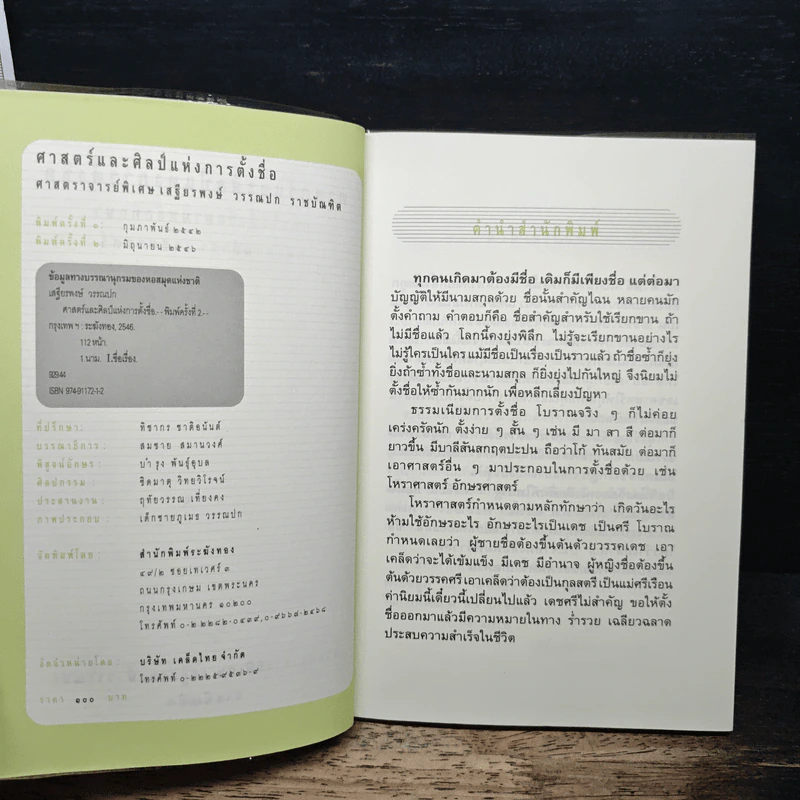 ศาสตร์และศิลป์แห่งการตั้งชื่อ
ศาสตราจารย์พิเศษ เสฐียรพงษ์ วรรณปก ราชบัณฑิต
พิมพ์ครั้งที่ ๑: กุมภาพันธ์ ๒๕๔๒
พิมพ์ครั้งที่ ๒: มิถุนายน ๒๕๔๖
ข้อมูลทางบรรณานุกรมของหอสมุดแห่งชาติ
เสฐียรพงษ์ วรรณปก
ศาสตร์และศิลป์แห่งการตั้งชื่อ.--พิมพ์ครั้งที่ 2.--
กรุงเทพฯ : ระฆังทอง, 2546.
112 หน้า.
1.นาม. I.ชื่อเรื่อง.
929.44
ISBN 974-91172-1-2
ที่ปรึกษา: ทิชากร ชาติอนันต์
บรรณาธิการ: สมชาย สมานวงศ์
พิสูจน์อักษร: บำรุง พันธุ์อุบล
ศิลปกรรม: ชิดมาดุ วิทยวิโรจน์
ประสานงาน: ฤทัยวรรณ เที่ยงคง
ภาพประกอบ: เด็กชายภูเมธ วรรณปก
จัดพิมพ์โดย: สำนักพิมพ์ระฆังทอง
๔๙/๒ ซอยเทเวศร์ ๓
ถนนกรุงเกษม เขตพระนคร
กรุงเทพมหานคร ๑๐๒๐๐
โทรศัพท์ ๐-๒๒๘๒-๐๔๓๙,๐-๙๖๖๘-๒๔๖๘
จัดจำหน่ายโดย: บริษัท เคล็ดไทย จำกัด
โทรศัพท์ ๐-๒๒๒๕-๙๕๓๖-๙
ราคา ๑๐๐ บาท
คำนำสำนักพิมพ์
ทุกคนเกิดมาต้องมีชื่อ เดิมก็มีเพียงชื่อ แต่ต่อมา
บัญญัติให้มีนามสกุลด้วย ชื่อนั้นสำคัญไฉน หลายคนมัก
ตั้งคำถาม คำตอบก็คือ ชื่อสำคัญสำหรับใช้เรียกขาน ถ้า
ไม่มีชื่อแล้ว โลกนี้คงยุ่งพิลึก ไม่รู้จะเรียกขานอย่างไร
ไม่รู้ใครเป็นใคร แม้มีชื่อเป็นเรื่องเป็นราวแล้ว ถ้าชื่อซ้ำก็ยุ่ง
ยิ่งถ้าซ้ำทั้งชื่อและนามสกุล ก็ยิ่งยุ่งไปกันใหญ่ จึงนิยมไม่
ตั้งชื่อให้ซ้ำกันมากนัก เพื่อหลีกเลี่ยงปัญหา
ธรรมเนียมการตั้งชื่อ โบราณจริง ๆ ก็ไม่ค่อย
เคร่งครัดนัก ตั้งง่าย ๆ สั้น ๆ เช่น มี มา สา สี ต่อมาก็
ยาวขึ้น มีบาลีสันสกฤตปะปน ถือว่าโก้ ทันสมัย ต่อมาก็
เอาศาสตร์อื่น ๆ มาประกอบในการตั้งชื่อด้วย เช่น
โหราศาสตร์ อักษรศาสตร์
โหราศาสตร์กำหนดตามหลักทักษาว่า เกิดวันอะไร
ห้ามใช้อักษรอะไร อักษรอะไรเป็นเดช เป็นศรี โบราณ
กำหนดเลยว่า ผู้ชายชื่อต้องขึ้นต้นด้วยวรรคเดช เอา
เคล็ดว่าจะได้เข้มแข็ง มีเดช มีอำนาจ ผู้หญิงชื่อต้องขึ้น
ต้นด้วยวรรคศรี เอาเคล็ดว่าต้องเป็นกุลสตรี เป็นแม่ศรีเรือน
ค่านิยมนี้เดี๋ยวนี้เปลี่ยนไปแล้ว เดชศรีไม่สำคัญ ขอให้ตั้ง
ชื่อออกมาแล้วมีความหมายในทาง ร่ำรวย เฉลียวฉลาด
ประสบความสำเร็จในชีวิต